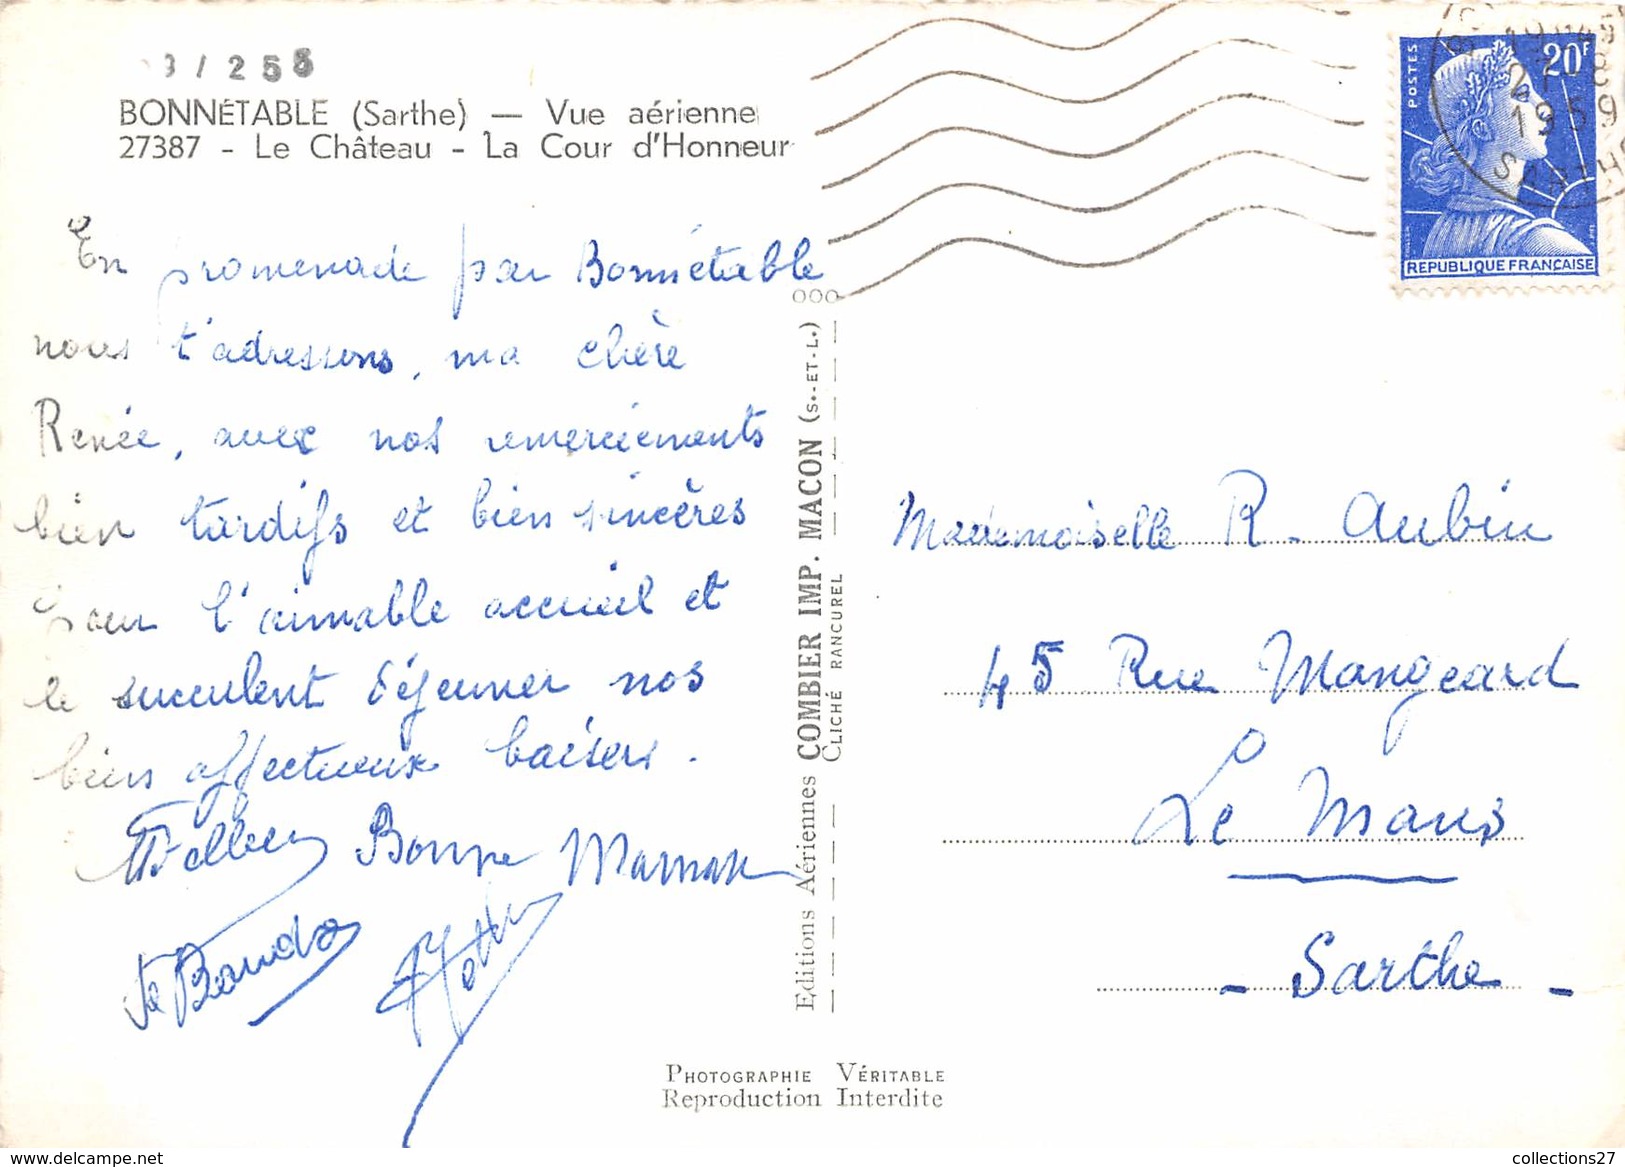 3/258
BONNÉTABLE (Sarthe) — Vue aérienne
27387 - Le Château - La Cour d'Honneur
En promenade par Bonnétable
nous t'adressons, ma chère
Renée, avec nos remerciements
bien tardifs et bien sincères
pour l'aimable accueil et
le succulent déjeuner nos
bien affectueux baisers.
Bonne Maman
ooo
Editions Aériennes COMBIER IMP. MACON (S.-ET-L.)
CLICHÉ RANCUREL
PHOTOGRAPHIE VÉRITABLE
Reproduction Interdite
POSTES
20F
REPUBLIQUE FRANÇAISE
1959
Mademoiselle R. Aubin
45 Rue Mangeard
Le Mans
- Sarthe -
delcampe.net
collections27